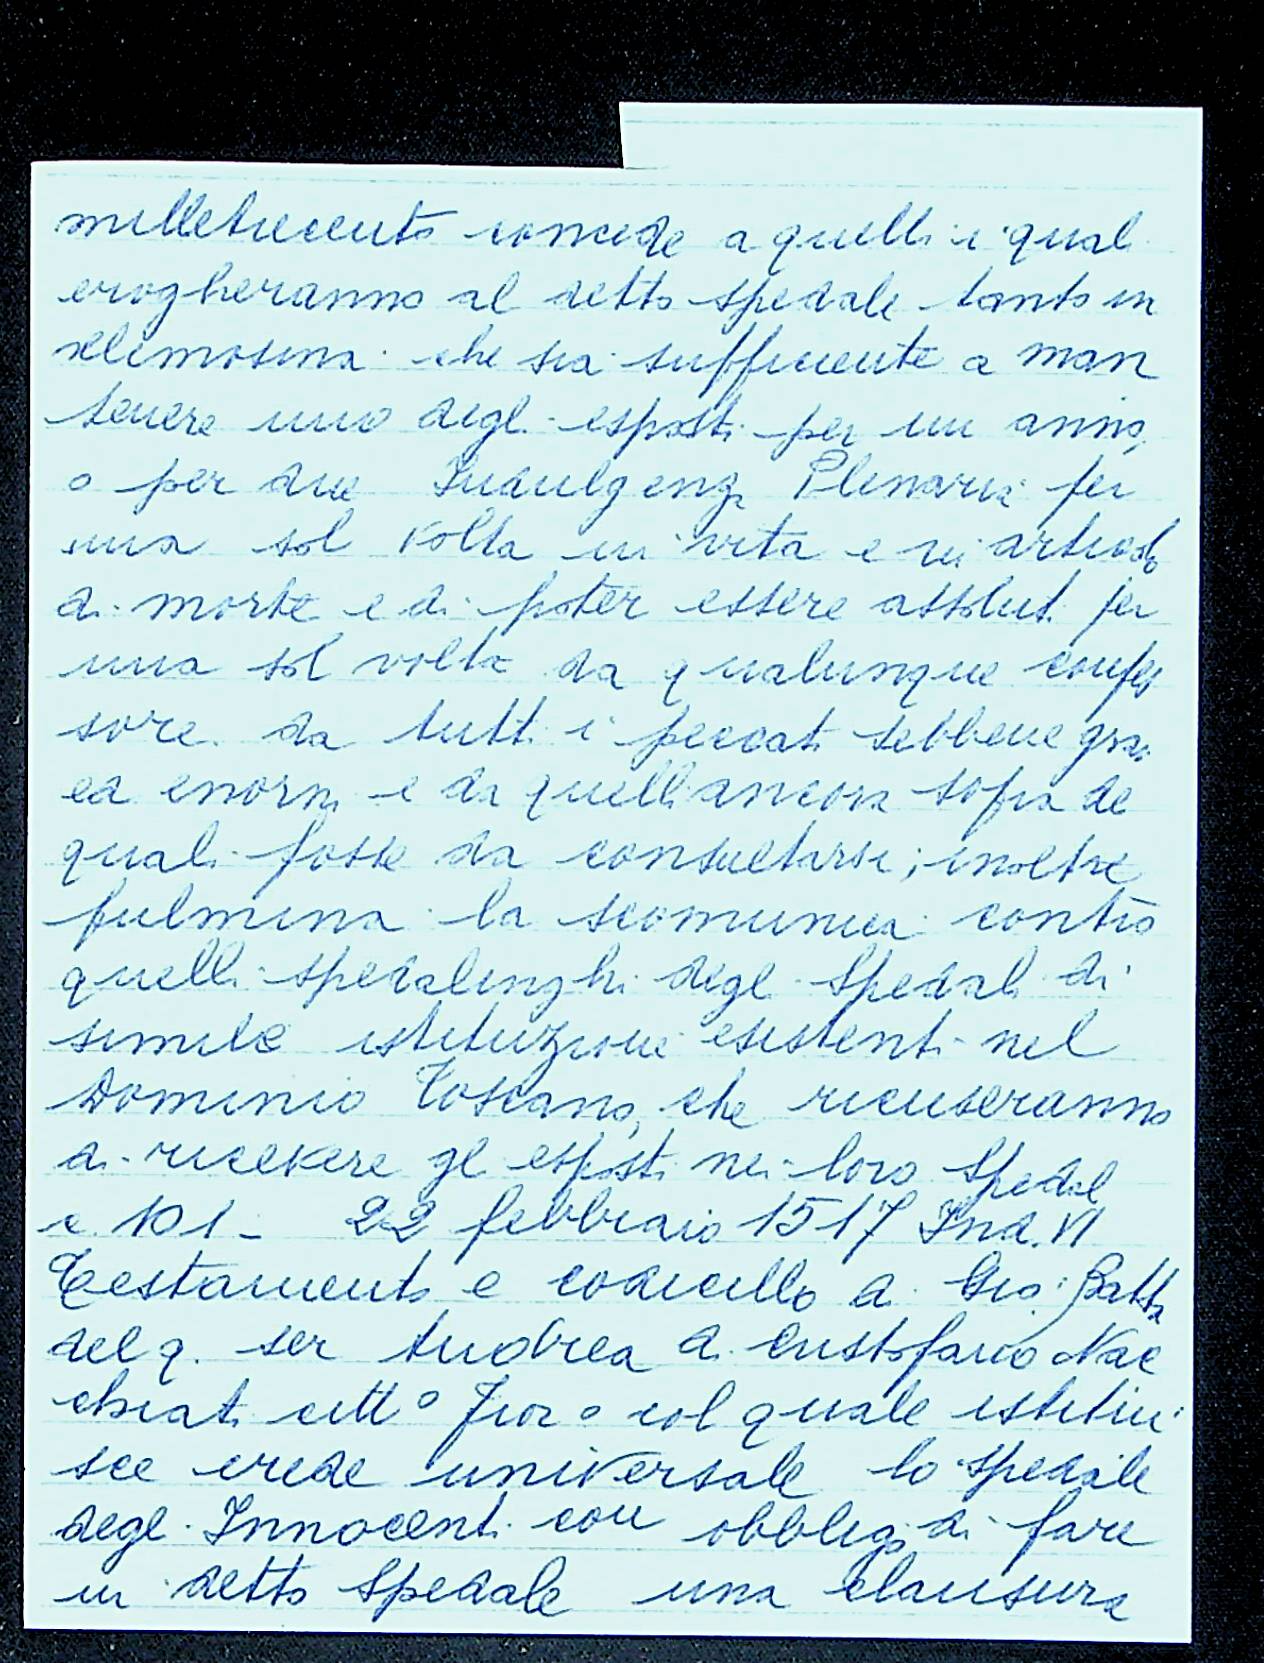 milletrecento concede a quelli i quali
erogheranno al detto spedale tanto in
elemosina che sia sufficiente a man
tenere uno degli esposti per un anno,
o per due Indulgenze Plenarie per
una sol volta in vita e in articolo
di morte e di poter essere assoluti per
una sol volta da qualunque confes
sore da tutti i peccati sebbene gravi
ed enormi e da quelli ancora sopra de
quali fosse da consultarsi; inoltre
fulmina la scomunica contro
quelli spedalinghi degli Spedali di
simile istituzione esistenti nel
Dominio Toscano, che ricuseranno
di ricevere gli esposti nei loro Spedali
c. 101 - 22 febbraio 1517 Ind. VI
Testamento e codicillo di Gio: Batta
del q. ser Andrea di Cristofano Nac
chiati citt° Fior° col quale istitui
sce erede universale lo spedale
degli Innocenti con obbligo di fare
in detto Spedale una clausura